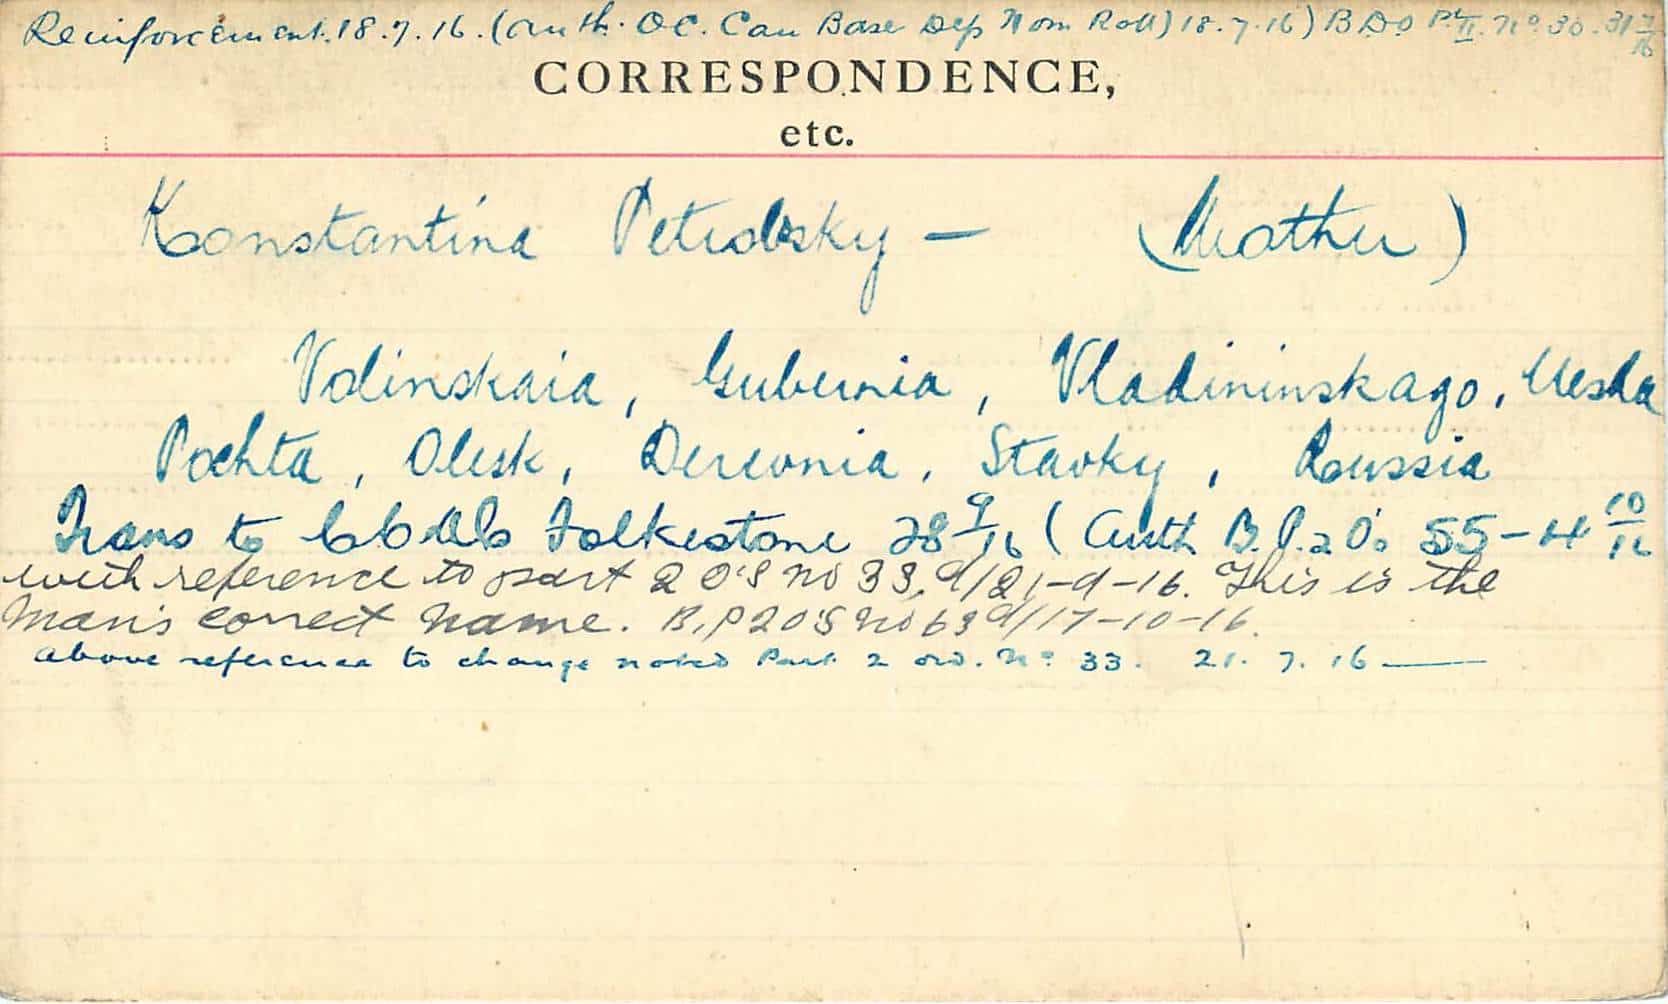 Reinforcement. 18.7.16. (Auth. O.C. Can Base Dep Nom Roll) 18.7.16) B D O Pt II. No 30. 31 7/16
CORRESPONDENCE,
etc.
Konstantina Petrovsky — (Mother)
Volinskaia, Gubernia, Vladininskago, Uesda
Pochta, Olesk, Derevnia, Stavky, Russia
Trans to Folkestone 28 9/16 (Auth B.P.2 O's 55 - 4 10/16
with reference to part 2 O'S no 33, d/21-9-16. This is the
Man's correct name. B.P 2 O'S no 63 d/17-10-16.
Above reference to change noted Part 2 ord. No 33. 21.7.16 —